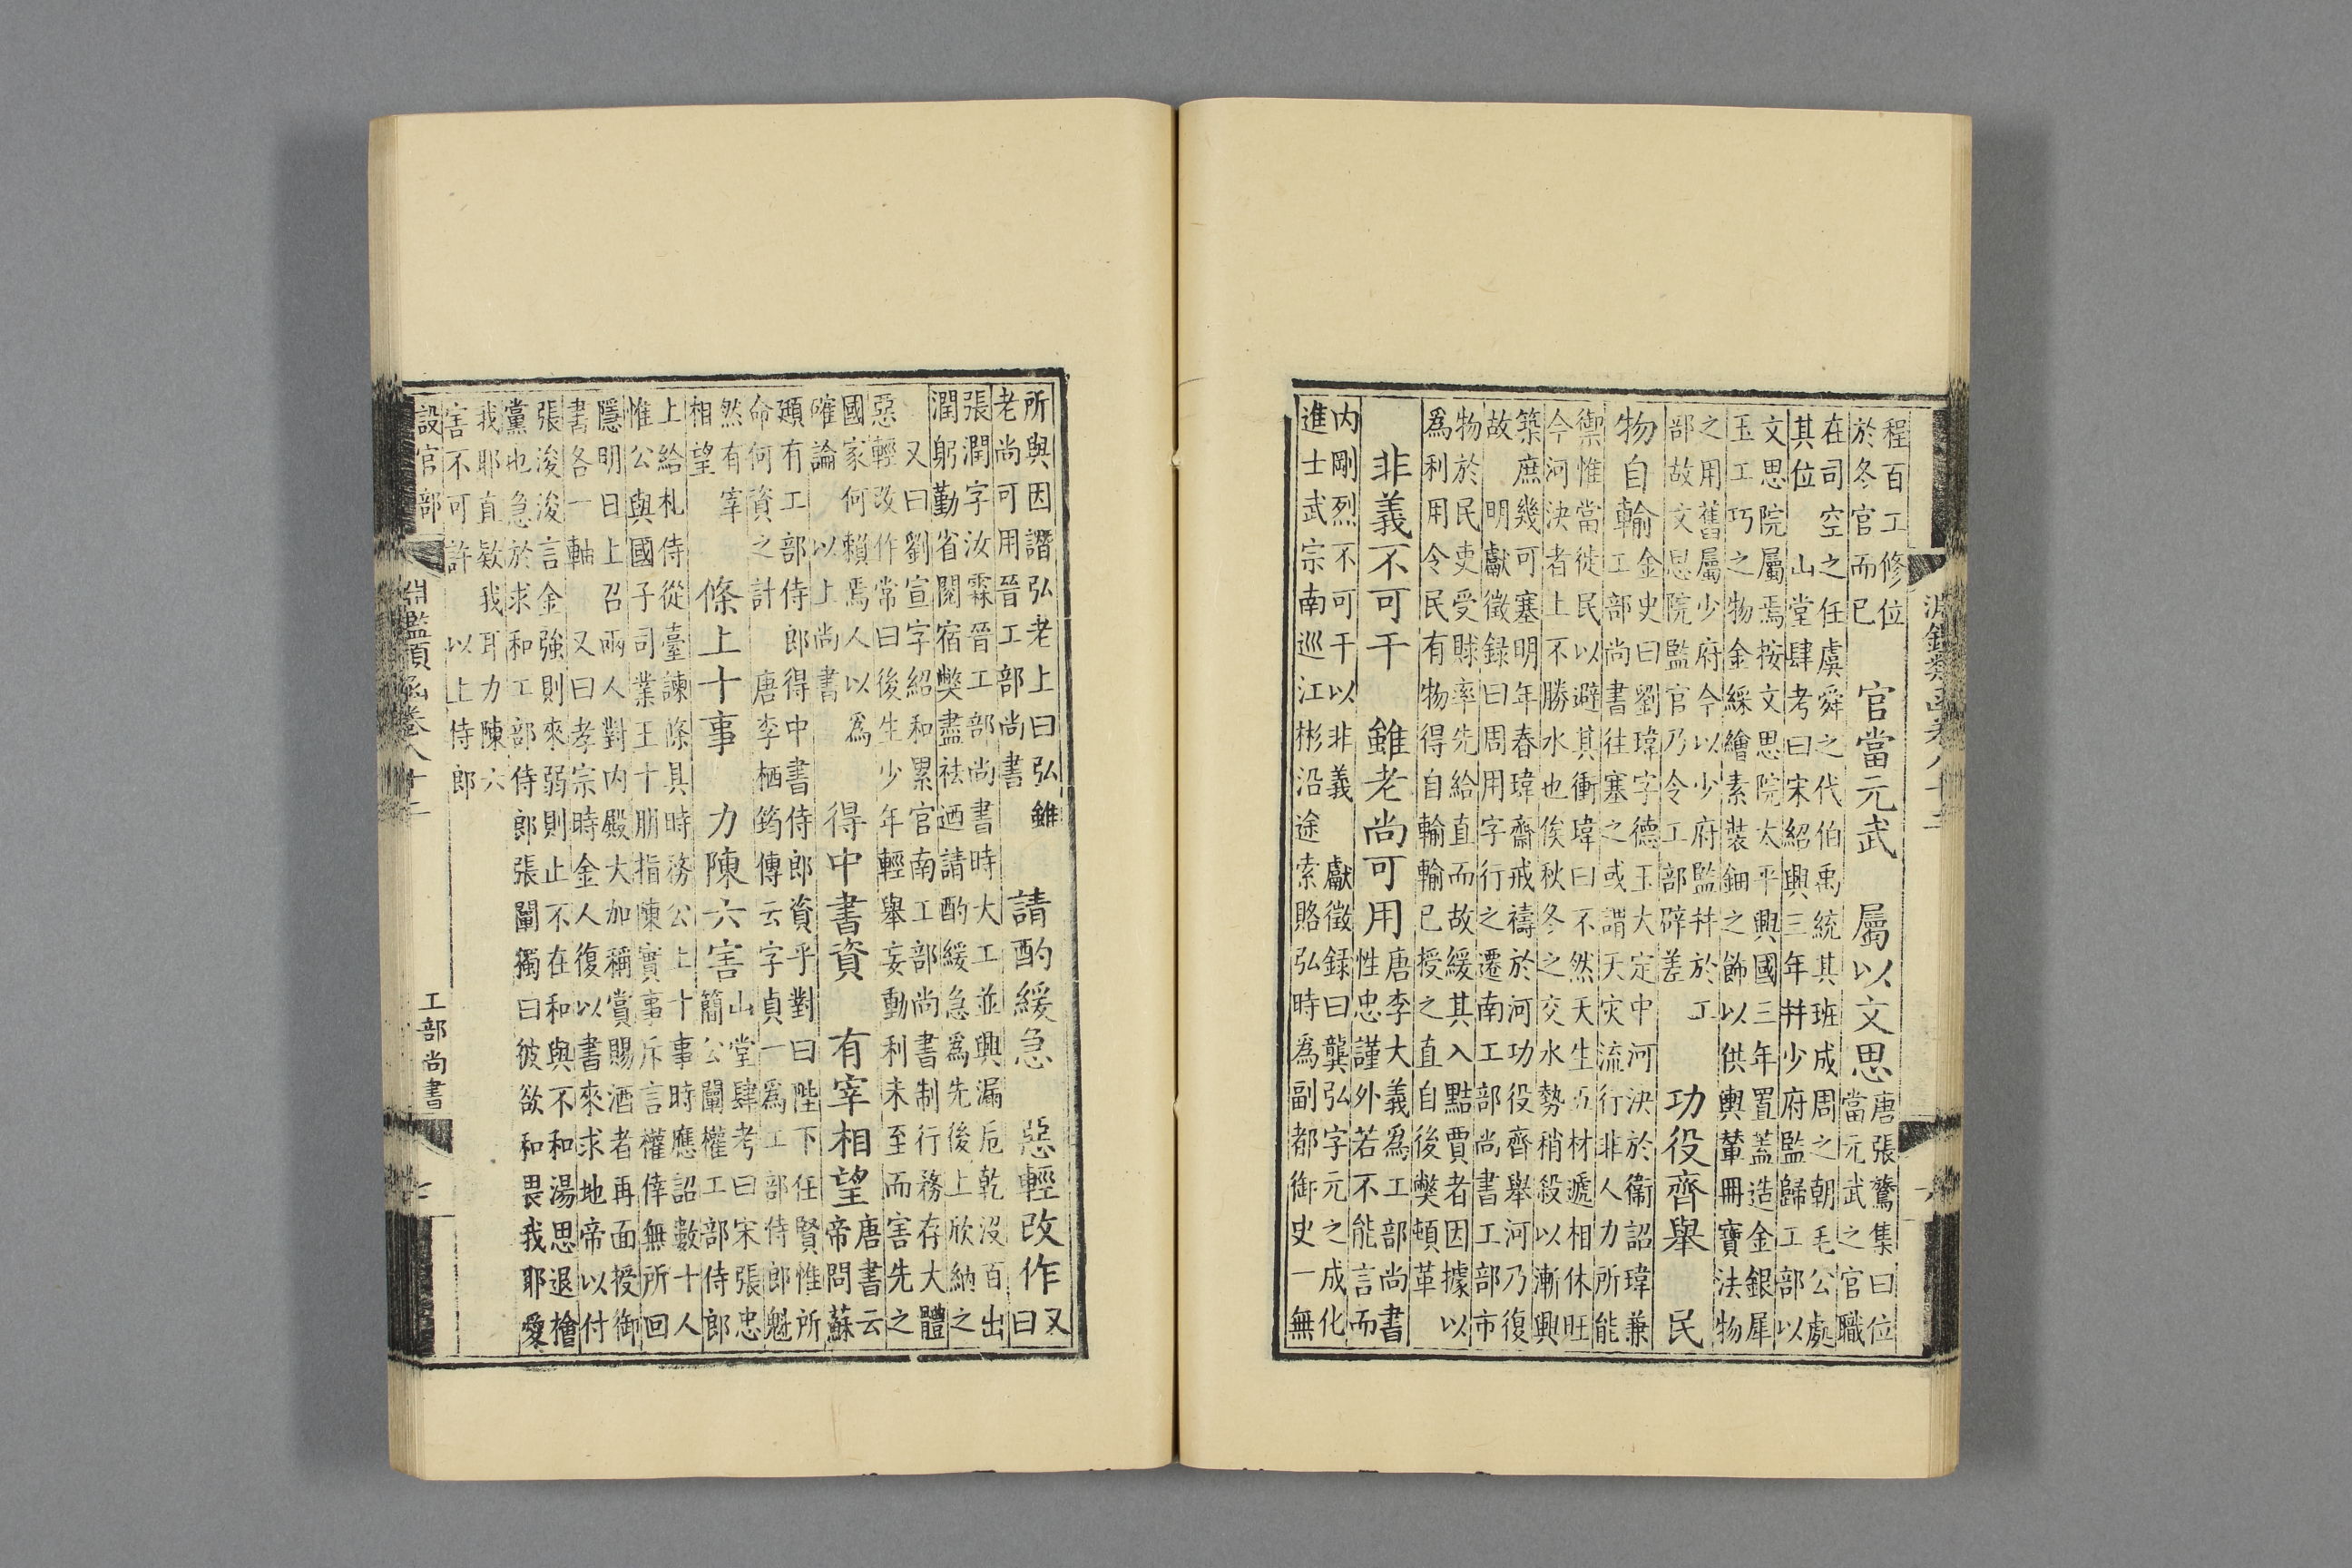 淵鑑類函卷八十二
程百工修位
於冬官而已
官當元武　屬以文思
唐張鷟集曰位
當元武之官職
在司空之任虞舜之代伯禹統其班成周之朝毛公處
其位　山堂肆考曰宋紹興三年幷少府監歸工部以
文思院屬焉按文思院太平興國三年置蓋造金銀犀
玉工巧之物金綵繪素裝鈿之飾以供輿輦冊寶法物
之用舊屬少府今以少府監幷於工
部故文思院監官乃令工部辟差
功役齊舉　民
物自輸
金史曰劉瑋字德玉大定中河決於衞詔瑋兼
工部尚書往塞之或謂天灾流行非人力所能
禦惟當徙民以避其衝瑋曰不然天生五材遞相休旺
今河決者上不勝水也俟秋冬之交水勢稍殺以漸興
築庶幾可塞明年春瑋齋戒禱於河功役齊舉河乃復
故　明獻徵録曰周用字行之遷南工部尚書工部市
物於民吏受賕率先給直而故緩其入黠賈者因據以
爲利用令民有物得自輸輸已授之直自後獘頓革
非義不可干　雖老尚可用
唐李大義爲工部尚書
性忠謹外若不能言而
内剛烈不可干以非義　獻徵録曰龔弘字元之成化
進士武宗南巡江彬沿途索賂弘時爲副都御史一無
所與因譖弘老上曰弘雖
老尚可用晉工部尚書
請酌緩急　惡輕改作
又
曰
張潤字汝霖晉工部尚書時大工並興漏卮乾沒百出
潤躬勤省閱宿獘盡祛迺請酌緩急爲先後上欣納之
又曰劉宣字紹和累官南工部尚書制行務存大體
惡輕改作常曰後生少年輕舉妄動利未至而害先之
國家何賴焉人以爲
確論　以上尚書
得中書資　有宰相望
唐書云
帝問蘇
頲有工部侍郎得中書侍郎資乎對曰陛下任賢惟所
命何資之計　唐李栖筠傳云字貞一爲工部侍郎魁
然有宰
相望
條上十事　力陳六害
山堂肆考曰宋張忠
簡公闡權工部侍郎
上給札侍從臺諫條具時務公上十事時應詔數十人
惟公與國子司業王十朋指陳實事斥言權倖無所回
隱明日上召兩人對内殿大加稱賞賜酒者再面授御
書各一軸　又曰孝宗時金人復以書來求地帝以付
張浚浚言金強則來弱則止不在和與不和湯思退檜
黨也急於求和工部侍郎張闡獨曰彼欲和畏我耶愛
我耶直欵我耳力陳六
害不可許　以上侍郎
設官部
淵鑑類函卷八十二
工部尚書
七